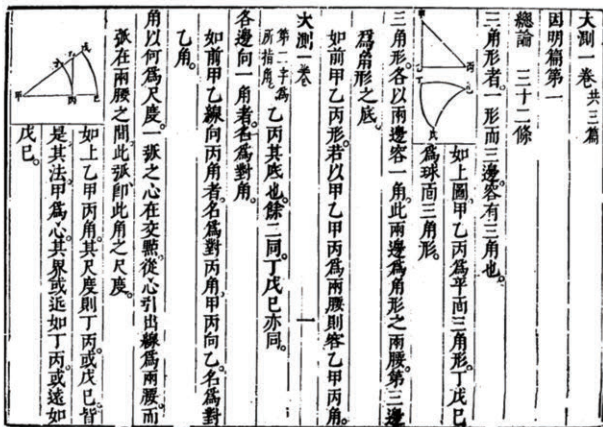 大測一卷 共三篇
因明篇第一
總論 三十二條
三角形者一形而三邊容有三角也。
如上圖甲乙丙爲平面三角形。丁戊己
爲球面三角形。
三角形。各以兩邊容一角。此兩邊爲角形之兩腰。第三邊
爲角形之底。
如前甲乙丙形。若以甲乙甲丙爲兩腰則容乙甲丙角。
大測一卷
一
第二字爲所指角。乙丙其底也。餘二同。丁戊己亦同。
各邊向一角者。名爲對角。
如前甲乙線向丙角者。名爲對丙角。甲丙向乙。名爲對
乙角。
角以何爲尺度。一張之心在交點。從心引出線爲兩腰。而
張在兩腰之間。此張卽此角之尺度。
如上乙甲丙角。其尺度則丁丙。或戊己。皆
是其法。甲爲心。其界或近如丁丙。或遠如
戊己。